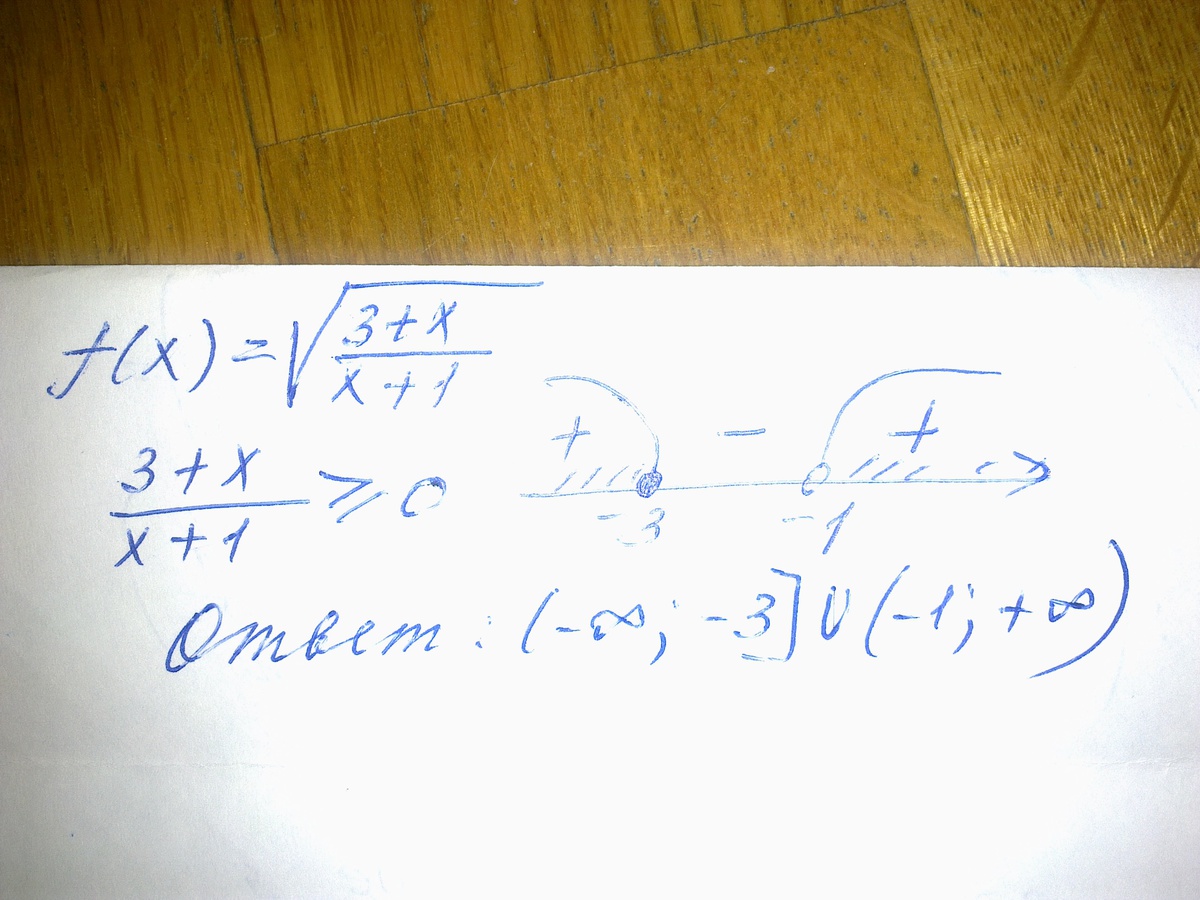 f(x) = √((3+x)/(x+1))
(3+x)/(x+1) ⩾ 0
+ - +
-3 -1
Ответ: (-∞; -3] ∪ (-1; +∞)